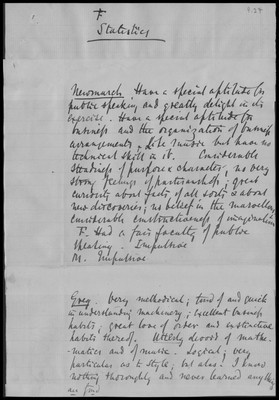 F
Statistics
Newmarch. Have a special aptitude for
public speaking and greatly delight in its
exercise. Have a special aptitude for
business and the organization of business
arrangements. Like music but have no
technical skill in it. Considerable
steadiness of purpose & character; no very
strong feelings of partizanship; great
curiosity about facts of all sorts & about
new discoveries; no belief in the marvellous,
considerable constructiveness of imagination
F. Had a fair faculty of public
speaking. Impulsive
M. Impulsive
Greg. Very methodical; fond of and quick
in understanding machinery; excellent business
habits; great love of order and instinctive
habits thereof. Utterly devoid of mathe-
matics and of music. Logical; very
particular as to style; but alas! I know
nothing thoroughly and never learned anything